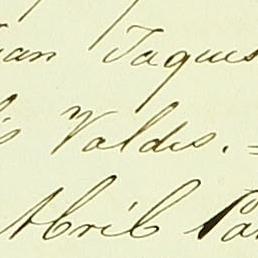 uan Jaques
s Valdes. =
Abril Pa